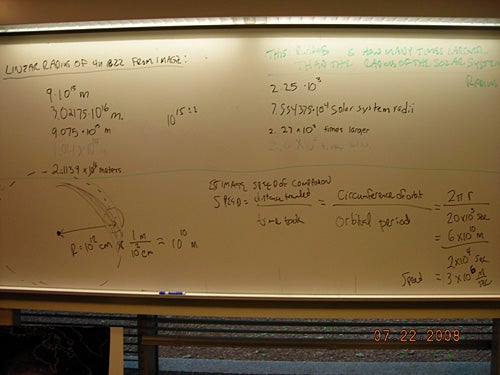 LINEAR RADIUS OF 4U 1822 FROM IMAGE:
9·10¹⁵ m
3.02175·10¹⁶ m.
9.075·10¹⁵ m
2.1139 x10¹⁶ meters.
10¹⁵±1
THIS RADIUS IS HOW MANY TIMES LARGER
THAN THE RADIUS OF THE SOLAR SYSTEM
RADIUS
2.25·10³
7.554375·10⁴ Solar system radii
2.27 x10³ times larger
ESTIMATE SPEED OF COMPANION
SPEED = distance traveled / time took = Circumference of orbit / orbital period = 2πr / 20x10³ sec
= 6x10¹⁰ m / 2x10⁴ sec
Speed = 3x10⁶ m/sec
R = 10¹² cm x 1m / 10² cm = 10¹⁰ m
07 22 2008